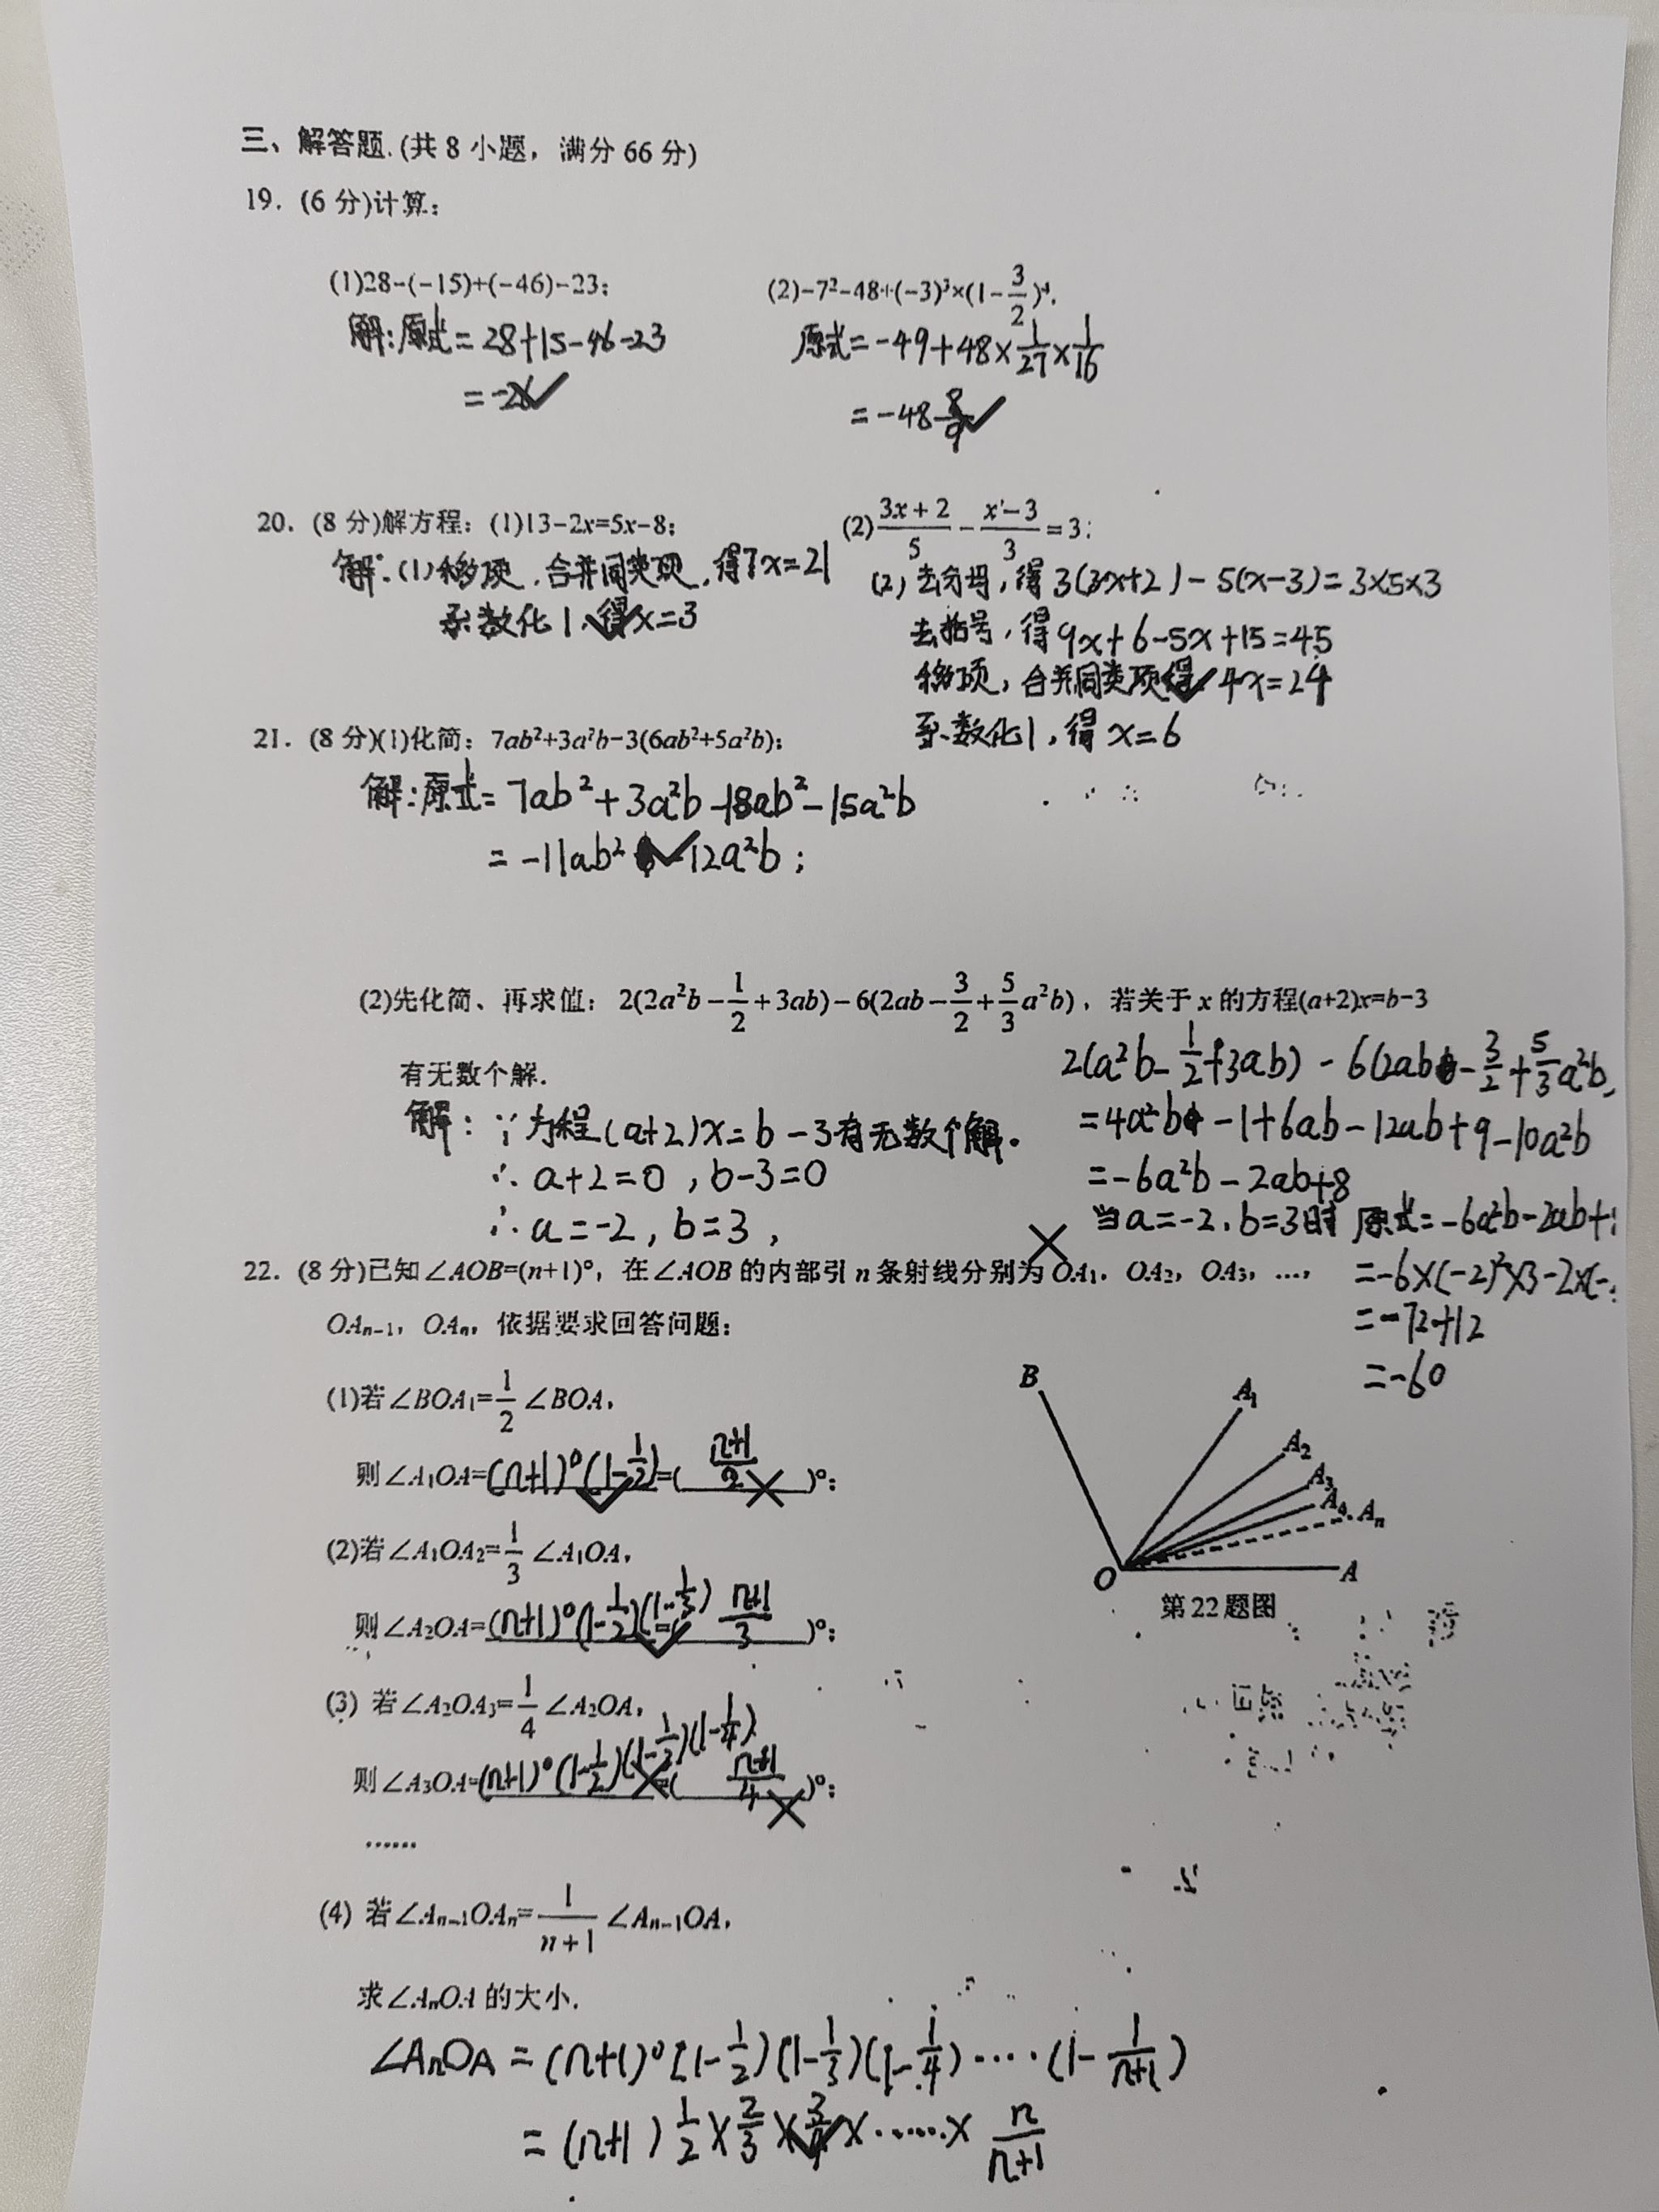 三、解答题.(共 8 小题，满分 66 分)
19. (6 分)计算:
(1)28-(-15)+(-46)-23;
(2)-7²-48÷(-3)³×(1-3/2)⁴.
解:原式=28+15-46-23
=-26
原式=-49+48×1/27×1/16
=-48 8/9
20. (8 分)解方程: (1)13-2x=5x-8;
(2)(3x+2)/5-(x-3)/3=3;
解:(1)移项,合并同类项,得7x=21
系数化1,得x=3
(2)去分母,得3(3x+2)-5(x-3)=3×5×3
去括号,得9x+6-5x+15=45
移项,合并同类项得 4x=24
系数化1,得 x=6
21. (8 分)(1)化简: 7ab²+3a²b-3(6ab²+5a²b);
解:原式=7ab²+3a²b-18ab²-15a²b
=-11ab²-12a²b;
(2)先化简、再求值: 2(2a²b-1/2+3ab)-6(2ab-3/2+5/3a²b), 若关于 x 的方程(a+2)x=b-3
有无数个解.
解: ∵方程(a+2)x=b-3有无数个解。
∴a+2=0,b-3=0
∴a=-2,b=3,
2(a²b-1/2+3ab)-6(2ab-3/2+5/3a²b)
=4a²b-1+6ab-12ab+9-10a²b
=-6a²b-2ab+8
当a=-2,b=3时 原式=-6a²b-2ab+
=-6×(-2)²×3-2×(-
=-72+12
=-60
22. (8 分)已知∠AOB=(n+1)°, 在∠AOB 的内部引 n 条射线分别为 OA₁, OA₂, OA₃, …,
OAₙ₋₁, OAₙ, 依据要求回答问题:
(1)若∠BOA₁=1/2∠BOA,
则∠A₁OA=(n+1)°(1-1/2)=( (n+1)/2 )°;
(2)若∠A₁OA₂=1/3∠A₁OA,
则∠A₂OA=(n+1)°(1-1/2)(1-1/3)=( (n+1)/3 )°;
(3) 若∠A₂OA₃=1/4∠A₂OA,
则∠A₃OA=(n+1)°(1-1/2)(1-1/3)(1-1/4)=( (n+1)/4 )°;
……
B
A₁
A₂
A₃
A₄
Aₙ
O
A
第22题图
(4) 若∠Aₙ₋₁OAₙ=1/(n+1)∠Aₙ₋₁OA,
求∠AₙOA 的大小.
∠AₙOA=(n+1)°(1-1/2)(1-1/3)(1-1/4)……(1-1/(n+1))
=(n+1)1/2×2/3×3/4×……×n/(n+1)